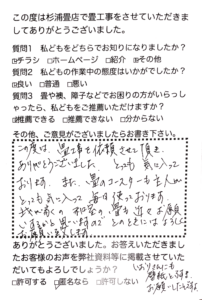 この度は杉浦畳店で畳工事をさせていただきま
してありがとうございました。
質問1 私どもをどちらでお知りになりましたか？
☑チラシ □ホームページ □紹介 ☑その他
質問2 私どもの作業中の態度はいかがでしたか？
☑良い □普通 □悪い
質問3 畳や襖、障子などでお困りの方がいらっし
ゃったら、私どもをご推薦いただけますか？
☑推薦できる □推薦できない □分からない
その他、ご意見がございましたらお書き下さい。
この度は、畳工事を依頼させて頂き、
ありがとうございました。とっても気に入って
おります。また、畳のコースターも主人が
とっても気に入って毎日使っております。
我が家の和室の、畳を
ありがとうございました。お答えいただきまし
たお客様のお声を弊社資料等に掲載させていた
だいてもよろしいでしょうか？
□許可する □匿名なら □許可しない